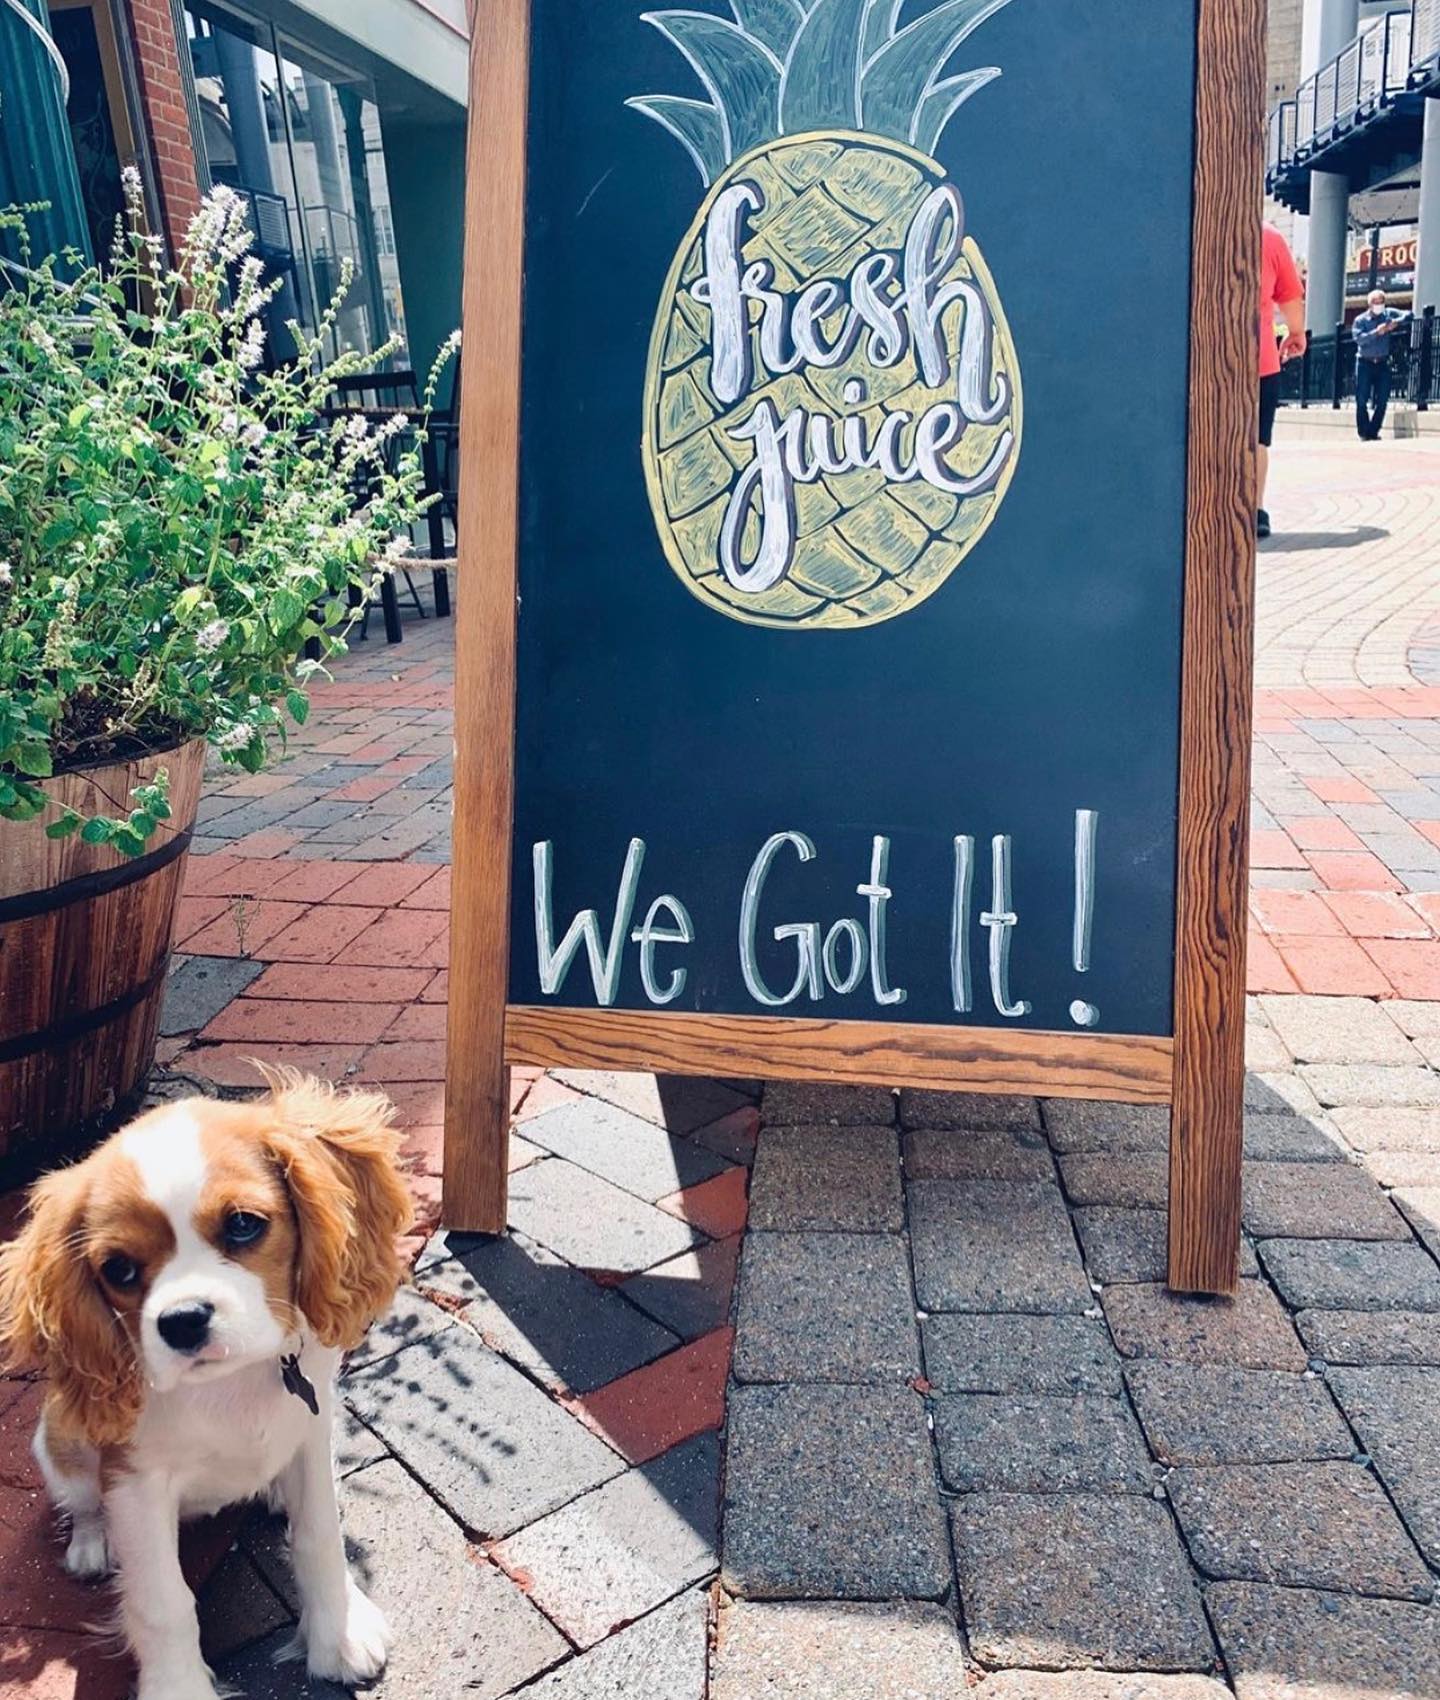 fresh
juice
We Got It!